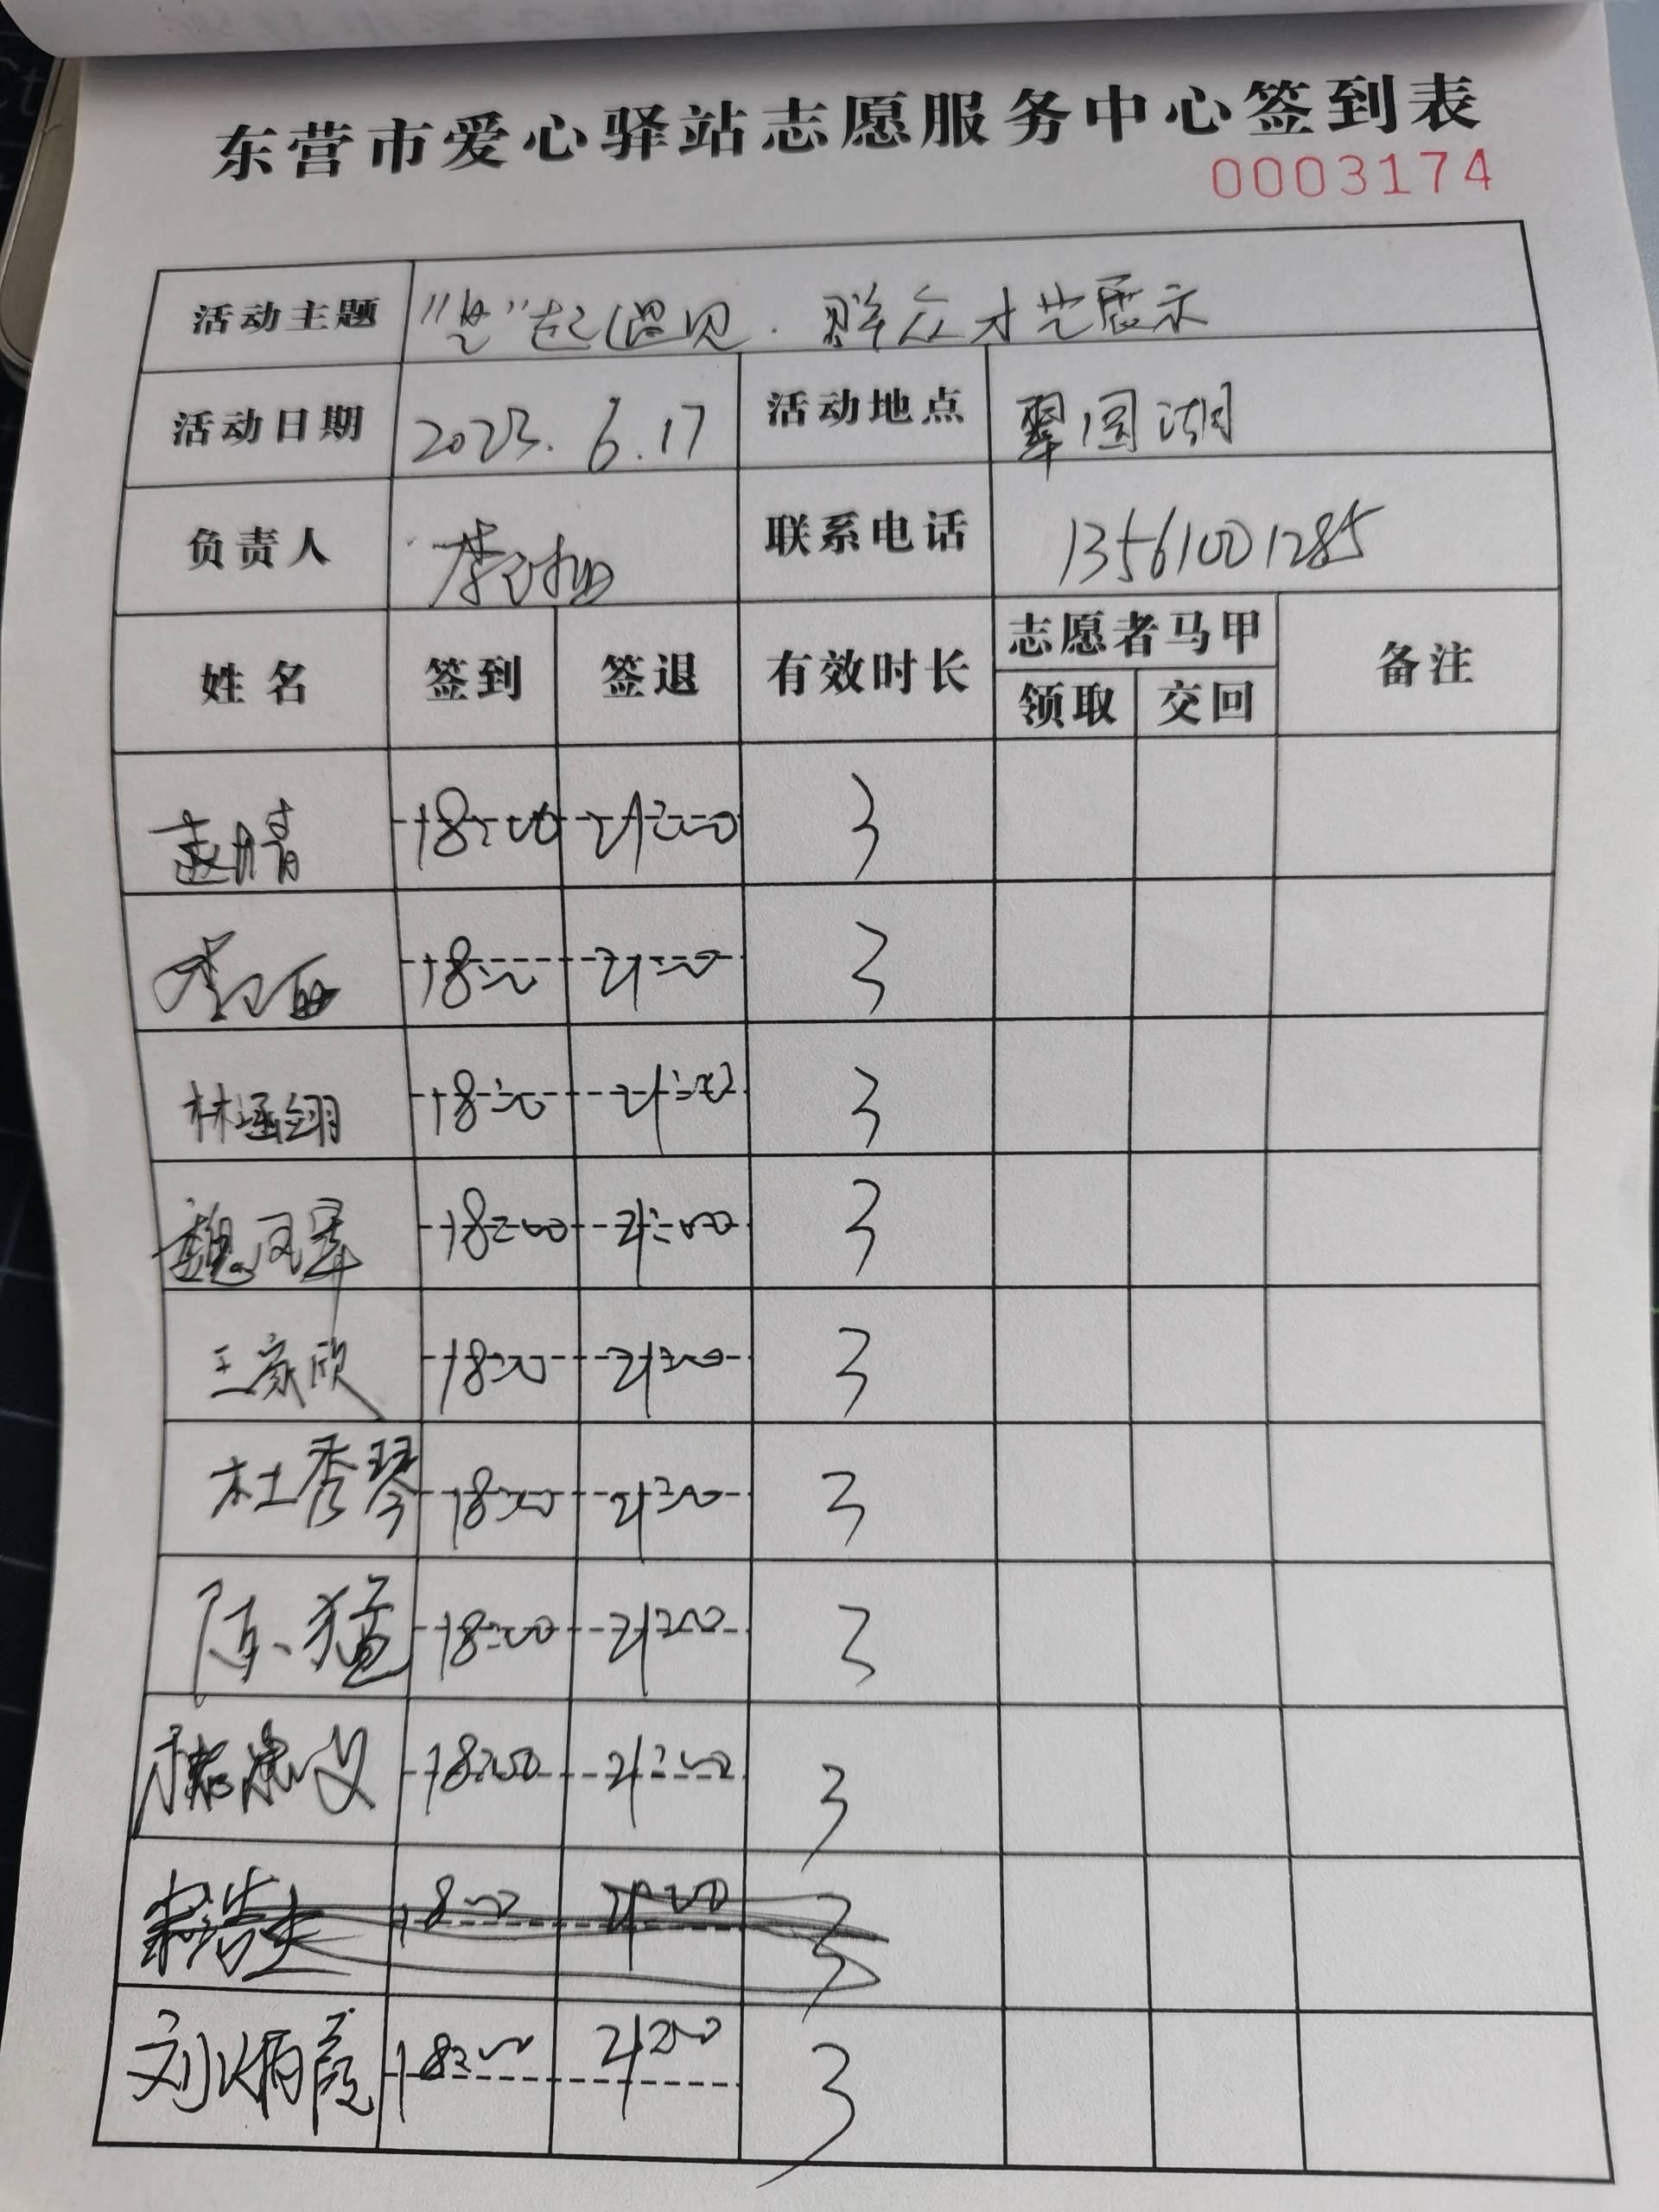 东营市爱心驿站志愿服务中心签到表
0003174
活动主题 起遇见.群众才艺展示
活动日期 2023.6.17 活动地点 翠园湖
负责人 李 联系电话 13561001285
姓名 签到 签退 有效时长 志愿者马甲 备注
领取 交回
赵婧 18:00 21:00 3
李 18:00 21:00 3
林涵翎 18:00 21:00 3
魏凤翠 18:00 21:00 3
王家欣 18:00 21:00 3
杜秀琴 18:00 21:00 3
陈猛 18:00 21:00 3
18:00 21:00 3
18:00 21:00 3
刘炳霞 18:00 21:00 3